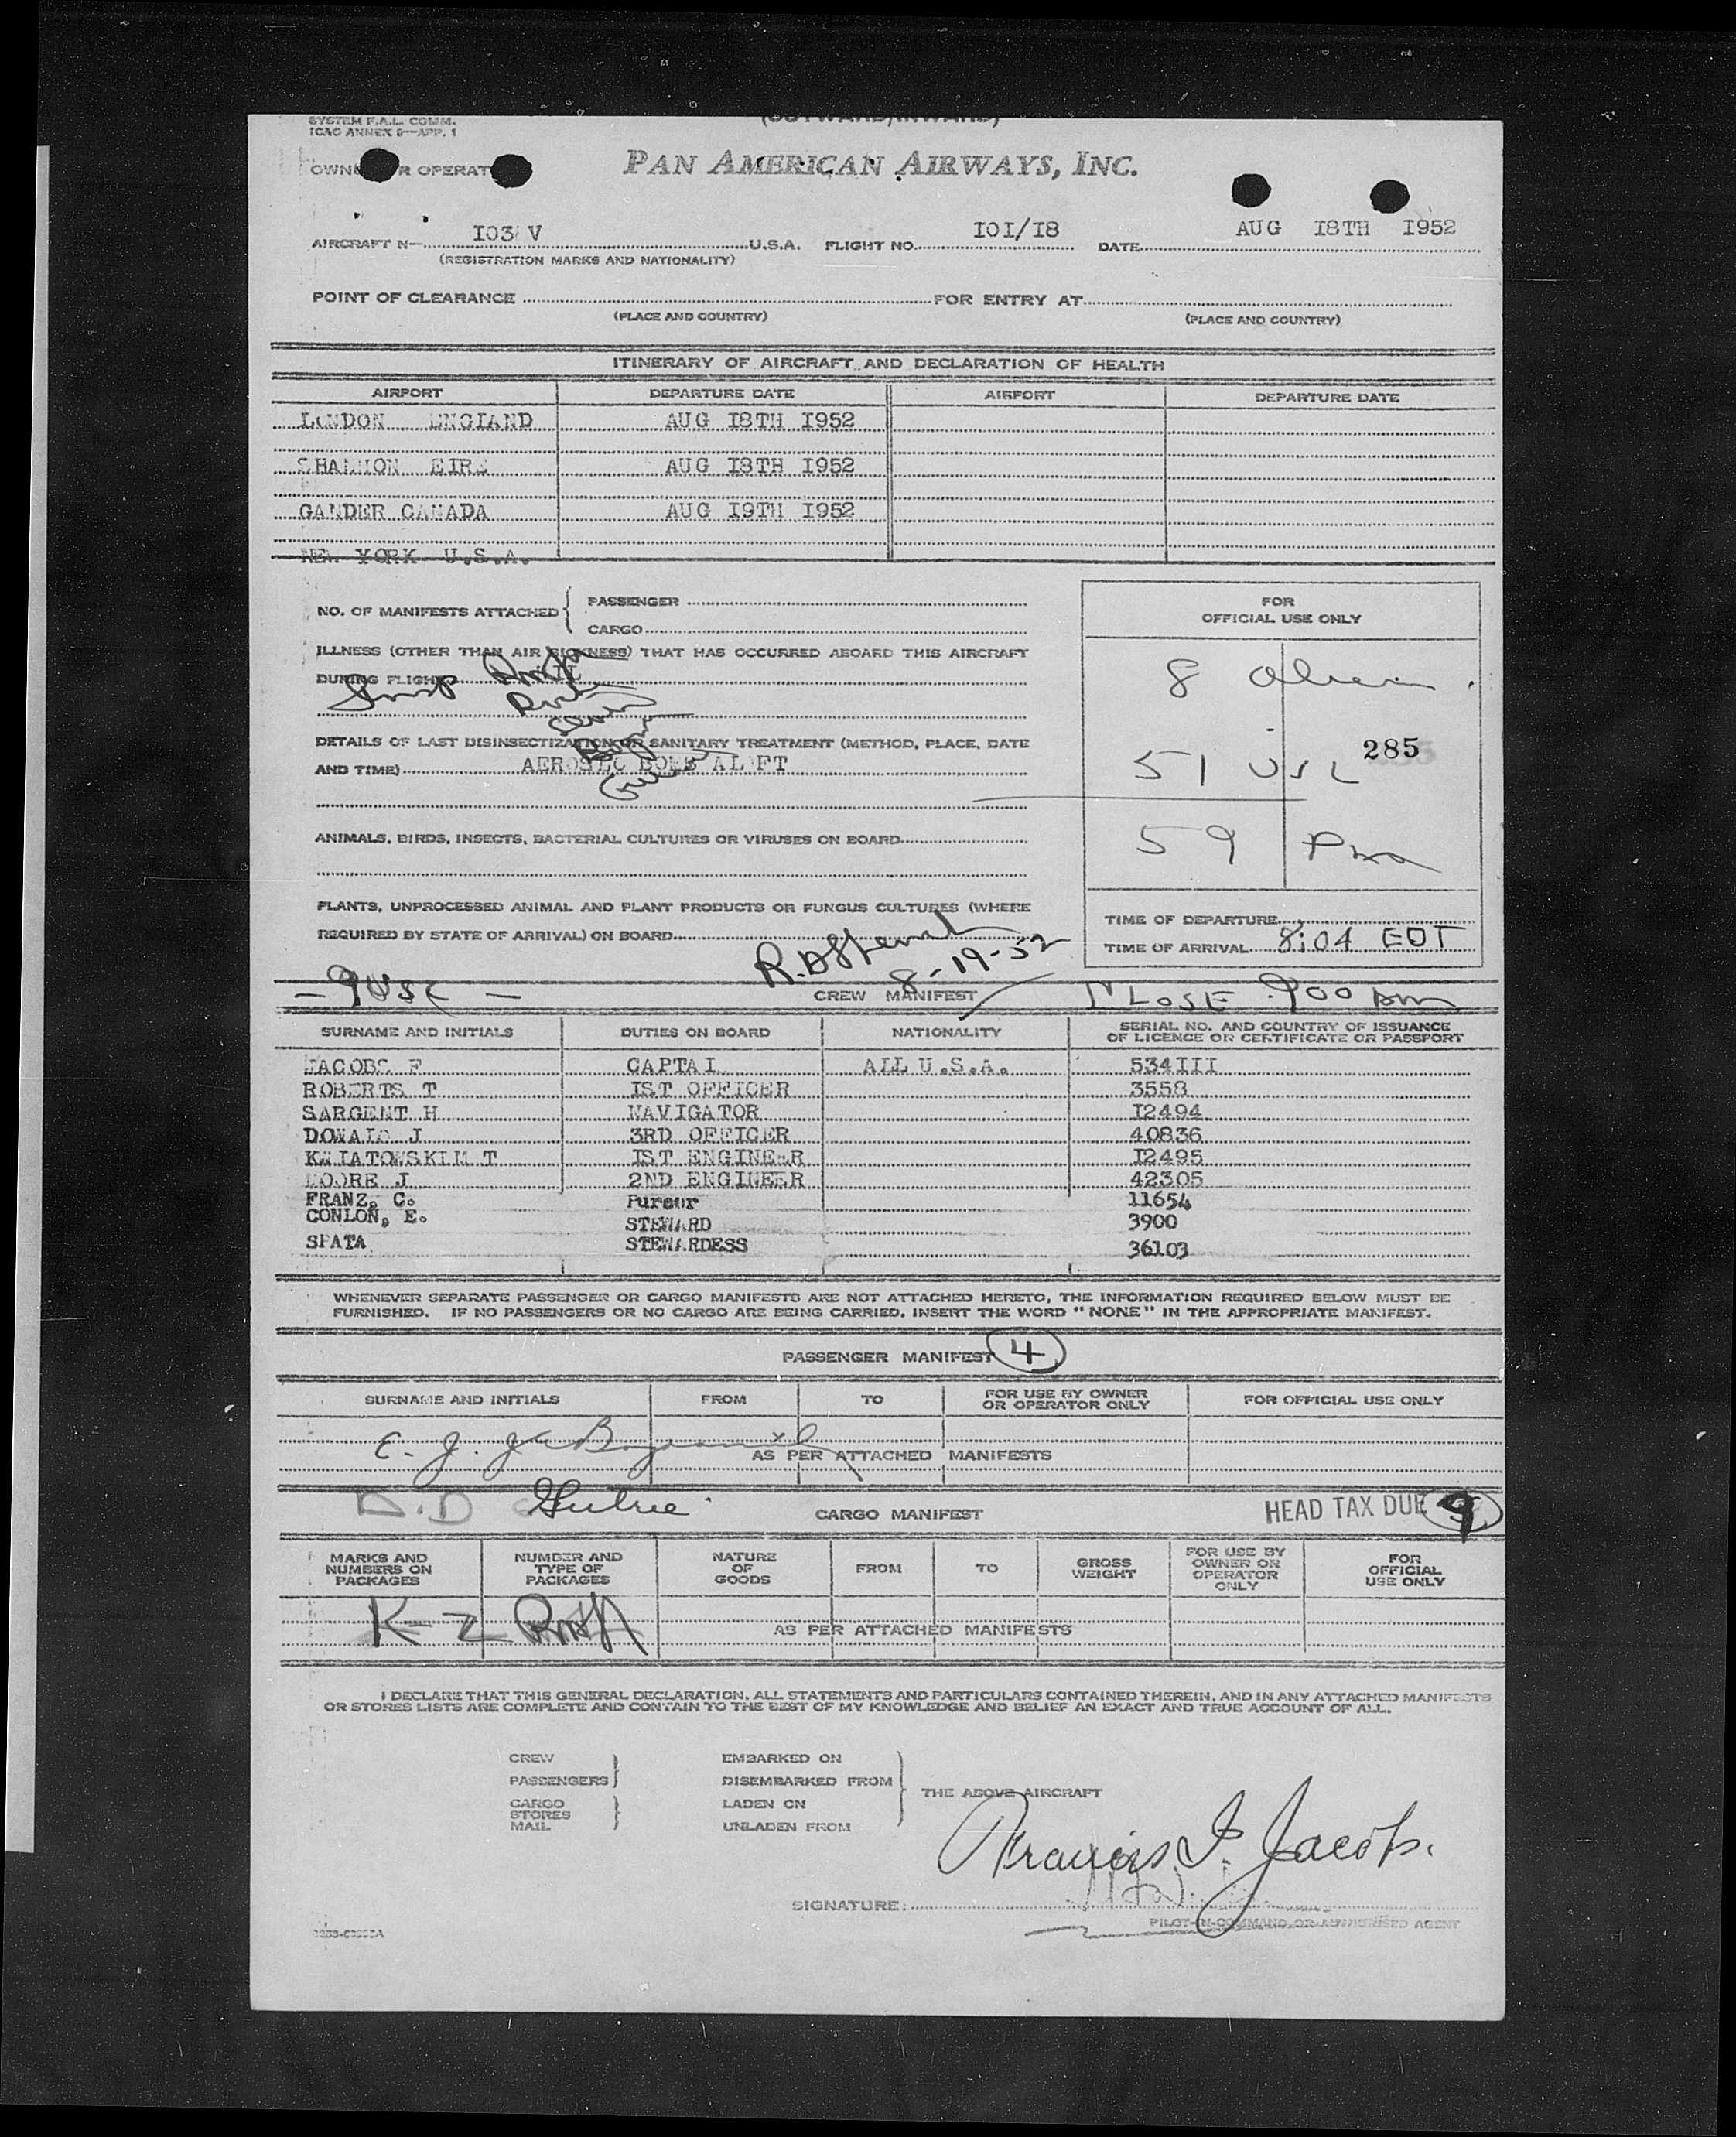 SYSTEM F.A.L. COMM. (OUTWARD/INWARD)
ICAO ANNEX 9—APP. 1
PAN AMERICAN AIRWAYS, INC.
AIRCRAFT N— I03 V U.S.A. FLIGHT NO. I0I/I8 DATE AUG I8TH I952
(REGISTRATION MARKS AND NATIONALITY)
POINT OF CLEARANCE FOR ENTRY AT
(PLACE AND COUNTRY) (PLACE AND COUNTRY)
ITINERARY OF AIRCRAFT AND DECLARATION OF HEALTH
AIRPORT DEPARTURE DATE AIRPORT DEPARTURE DATE
LONDON ENGLAND AUG I8TH I952
SHANNON EIRE AUG I8TH I952
GANDER CANADA AUG I9TH I952
NEW YORK U.S.A.
NO. OF MANIFESTS ATTACHED { PASSENGER
CARGO
FOR
OFFICIAL USE ONLY
ILLNESS (OTHER THAN AIR SICKNESS) THAT HAS OCCURRED ABOARD THIS AIRCRAFT
DURING FLIGHT
8 Aliens
DETAILS OF LAST DISINSECTIZATION OR SANITARY TREATMENT (METHOD, PLACE, DATE
AND TIME) AEROSLO BOMB ALOFT
285
51 USC
ANIMALS, BIRDS, INSECTS, BACTERIAL CULTURES OR VIRUSES ON BOARD
59
PLANTS, UNPROCESSED ANIMAL AND PLANT PRODUCTS OR FUNGUS CULTURES (WHERE
REQUIRED BY STATE OF ARRIVAL) ON BOARD
TIME OF DEPARTURE
TIME OF ARRIVAL 8:04 EDT
8-19-52
— 9 USC — CREW MANIFEST CLOSE 900 am
SURNAME AND INITIALS DUTIES ON BOARD NATIONALITY SERIAL NO. AND COUNTRY OF ISSUANCE
OF LICENCE OR CERTIFICATE OR PASSPORT
JACOBS F CAPTAI ALL U.S.A. 534III
ROBERTS T IST OFFICER 3558
SARGENT H NAVIGATOR I2494
DONALD J 3RD OFFICER 40836
KWIATOWSKIM T IST ENGINEER I2495
MOORE J 2ND ENGINEER 42305
FRANZ, C. Purser 11654
CONLON, E. STEWARD 3900
SPATA STEWARDESS 36103
WHENEVER SEPARATE PASSENGER OR CARGO MANIFESTS ARE NOT ATTACHED HERETO, THE INFORMATION REQUIRED BELOW MUST BE
FURNISHED. IF NO PASSENGERS OR NO CARGO ARE BEING CARRIED, INSERT THE WORD "NONE" IN THE APPROPRIATE MANIFEST.
PASSENGER MANIFEST 4
SURNAME AND INITIALS FROM TO FOR USE BY OWNER
OR OPERATOR ONLY FOR OFFICIAL USE ONLY
E. J.
AS PER ATTACHED MANIFESTS
D.D CARGO MANIFEST HEAD TAX DUE 9
MARKS AND
NUMBERS ON
PACKAGES NUMBER AND
TYPE OF
PACKAGES NATURE
OF
GOODS FROM TO GROSS
WEIGHT FOR USE BY
OWNER OR
OPERATOR
ONLY FOR
OFFICIAL
USE ONLY
K-Z
AS PER ATTACHED MANIFESTS
I DECLARE THAT THIS GENERAL DECLARATION, ALL STATEMENTS AND PARTICULARS CONTAINED THEREIN, AND IN ANY ATTACHED MANIFESTS
OR STORES LISTS ARE COMPLETE AND CONTAIN TO THE BEST OF MY KNOWLEDGE AND BELIEF AN EXACT AND TRUE ACCOUNT OF ALL.
CREW EMBARKED ON
PASSENGERS DISEMBARKED FROM
THE ABOVE AIRCRAFT
CARGO LADEN ON
STORES
MAIL UNLADEN FROM
Francis J. Jacobs.
SIGNATURE:
PILOT-IN-COMMAND OR AUTHORISED AGENT